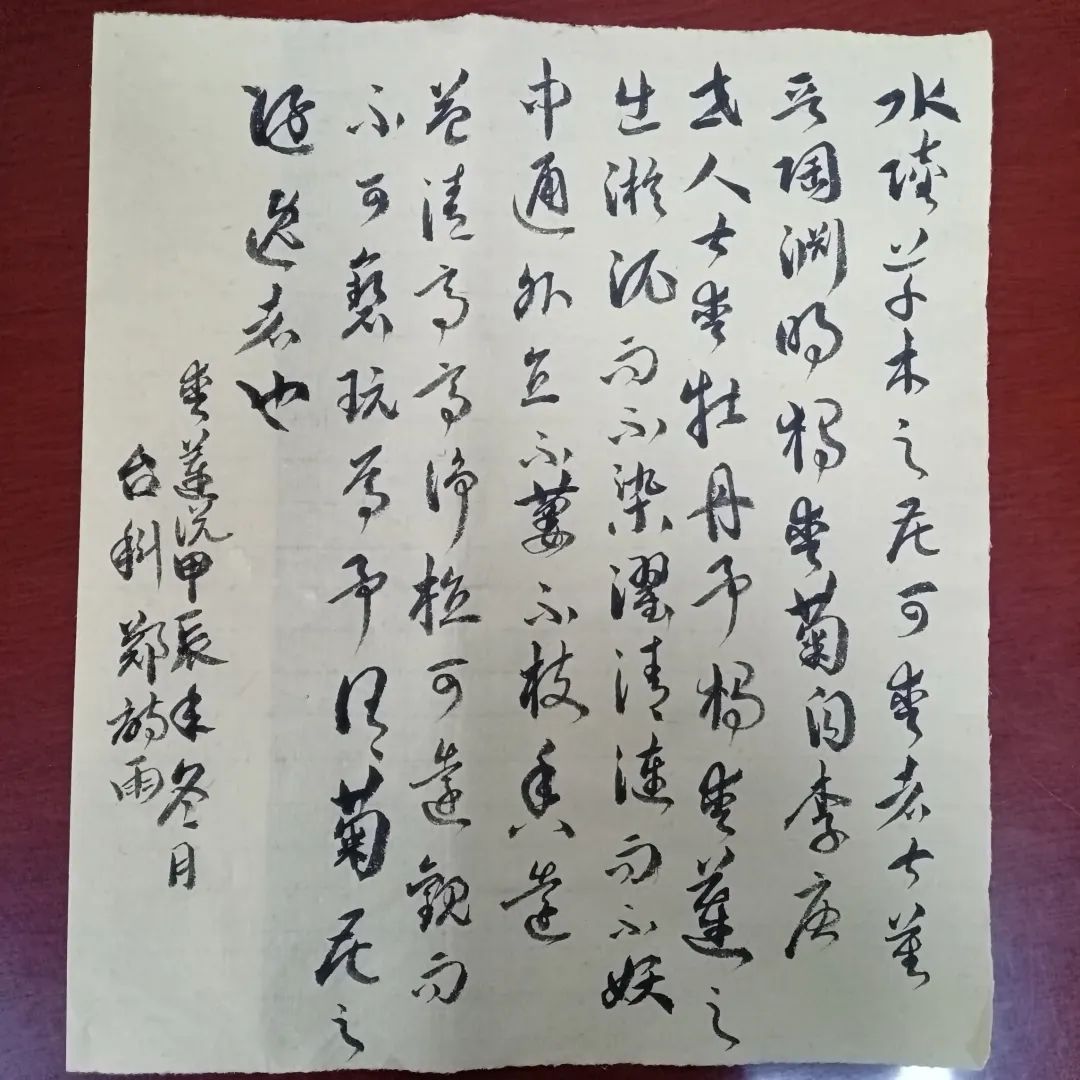 水陸草木之花可愛者甚蕃
晉陶淵明獨愛菊自李唐
世人甚愛牡丹予獨愛蓮之
出淤泥而不染濯清漣而不妖
中通外直不蔓不枝香遠
益清亭亭淨植可遠觀而
不可褻玩焉予謂菊花之
隱逸者也
愛蓮说甲辰年冬月
台科鄭詩雨